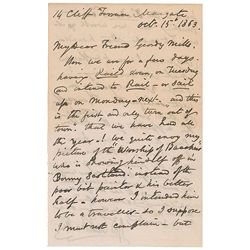 14 Cliff Terrace Margate
Oct. 15th 1863.
My Dear Friend Goody Mills.
Here we are for a few days
having Railed down, on Tuesday
and intend to Rail - or sail
up on Monday next. and this
is the first and only turn out of
town that we have had all
the year! We quite envy my
picture of the "Worship of Bacchus"
who is showing himself off in
Bonny Scotland instead of the
poor bit painter & his better
half - however I intended him
to be a traveller so I suppose
I must not complain - but